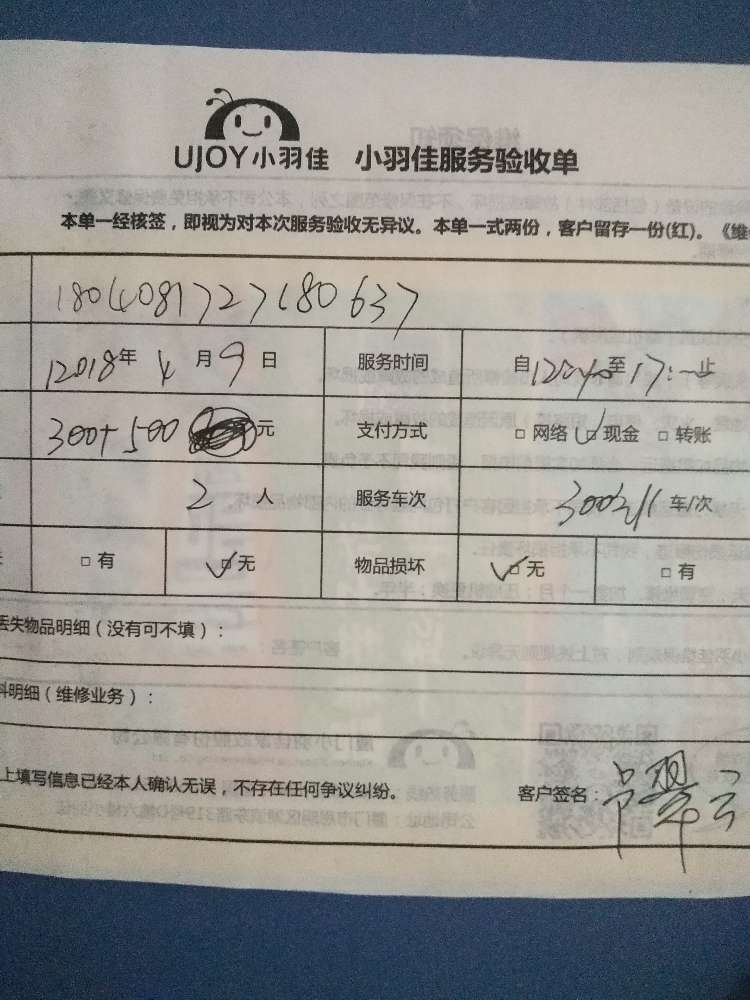 UJOY小羽佳 小羽佳服务验收单
本单一经核签，即视为对本次服务验收无异议。本单一式两份，客户留存一份(红)。《维
1804081727180637
2018年 4月9日 服务时间 自12 至17:一止
300+500 元 支付方式 □网络 □现金 □转账
2人 服务车次 300 车/次
□有 □无 物品损坏 □无 □有
丢失物品明细（没有可不填）：
料明细（维修业务）：
上填写信息已经本人确认无误，不存在任何争议纠纷。 客户签名：